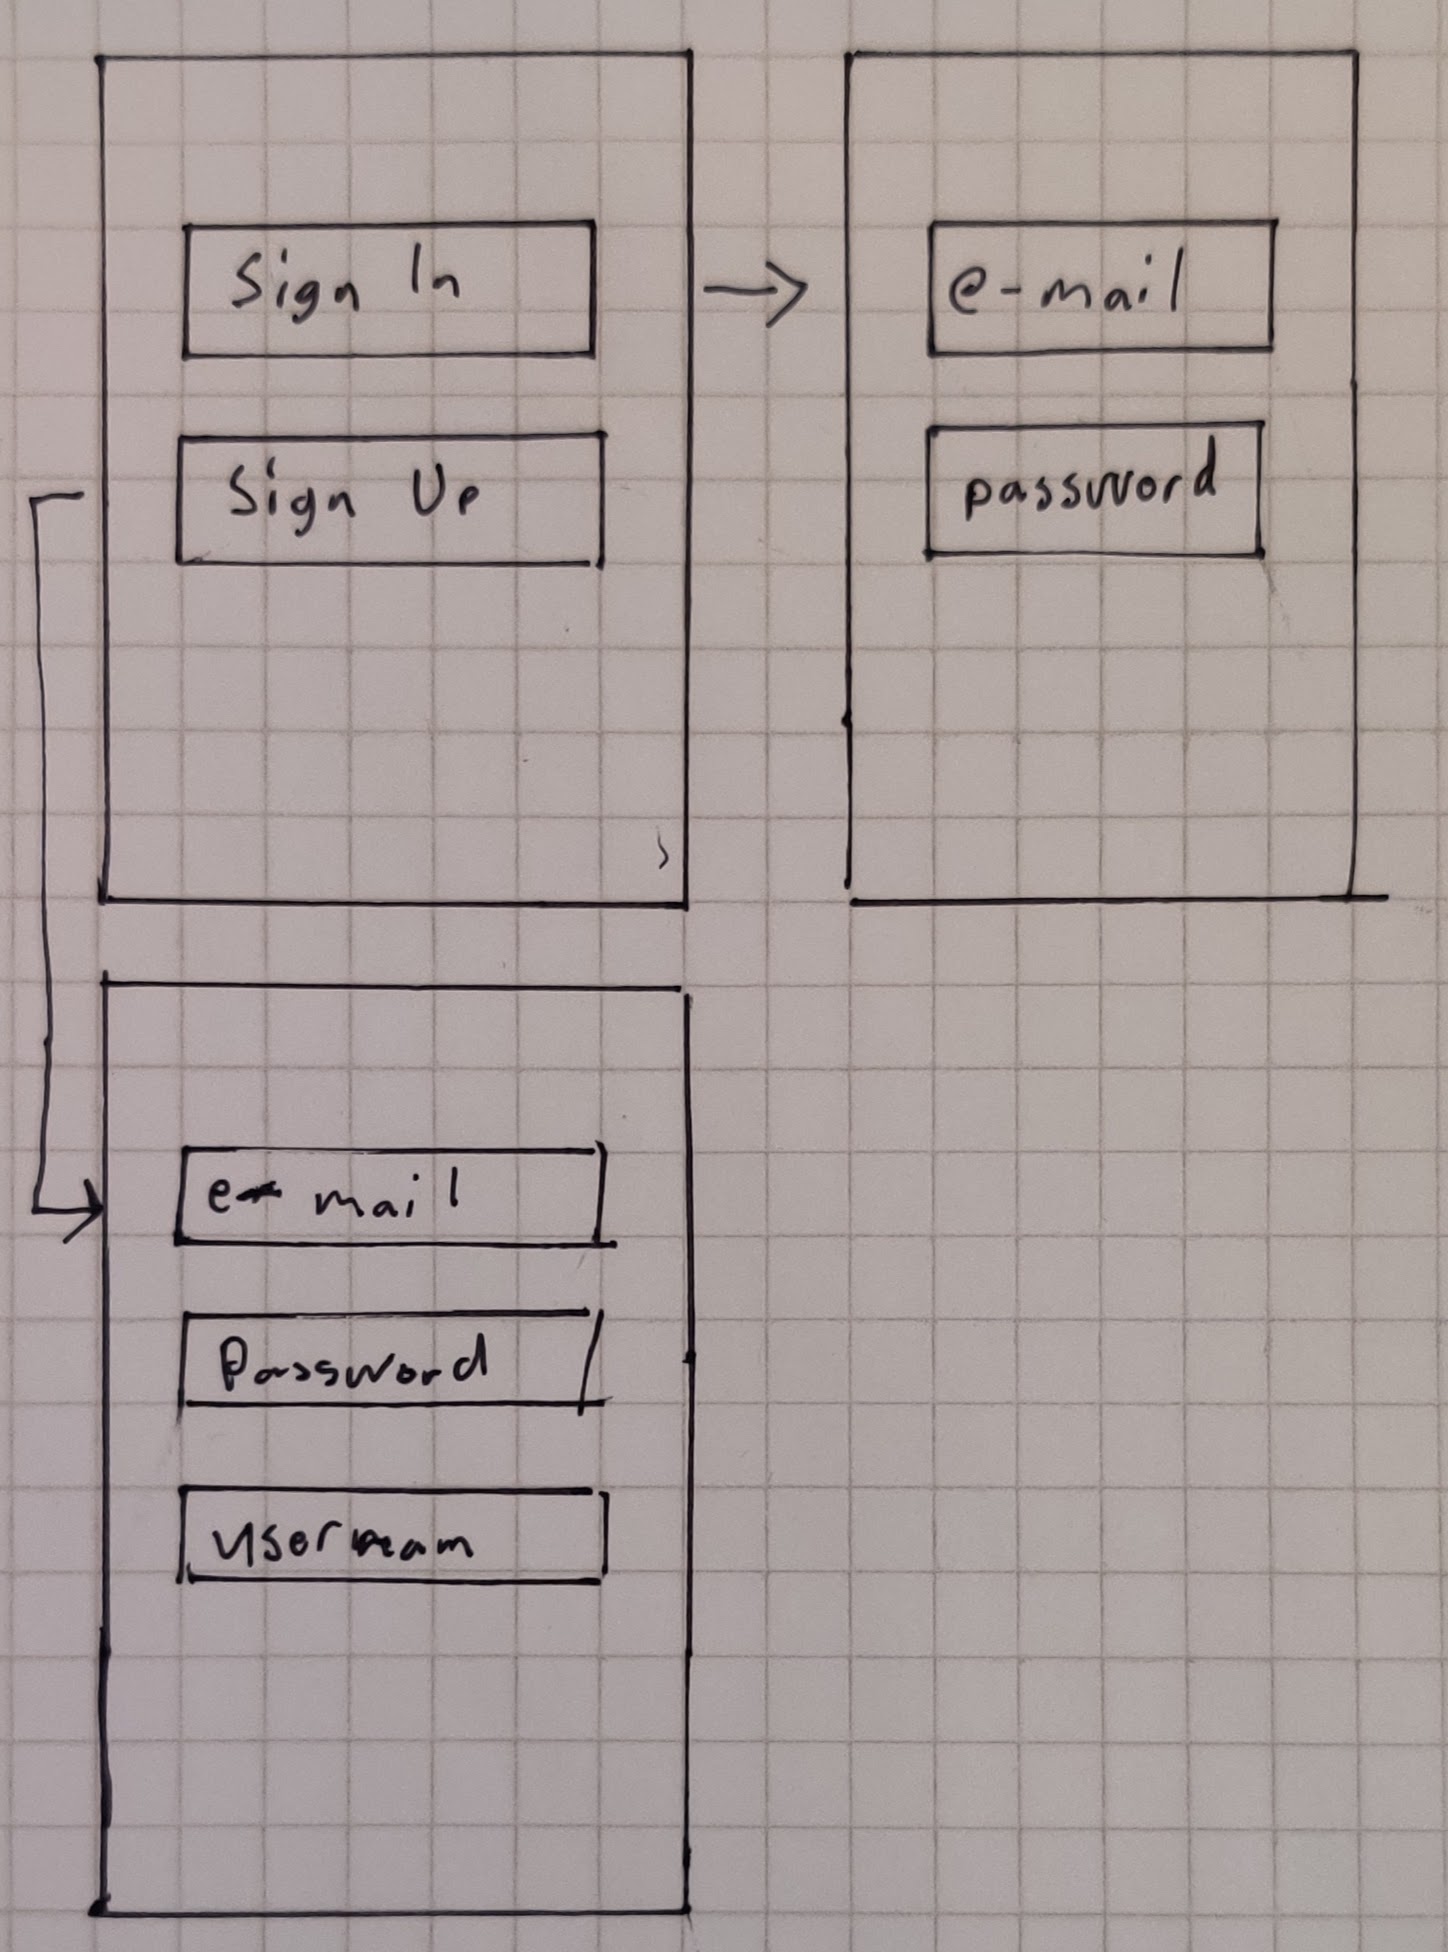 Sign In
Sign Up
e-mail
password
e-mail
Password